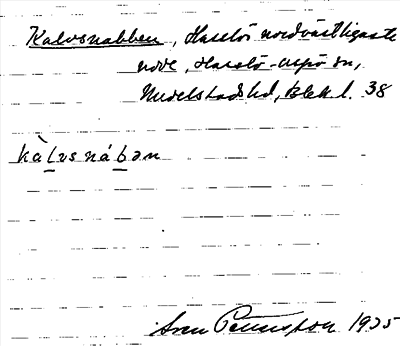 Kalvsnabben, Hasslö nordvästligaste
udde, Hasslö-Aspö sn,
Medelstads hd, Blek l. 38
kàlvsnábən
Sven Benson 1935